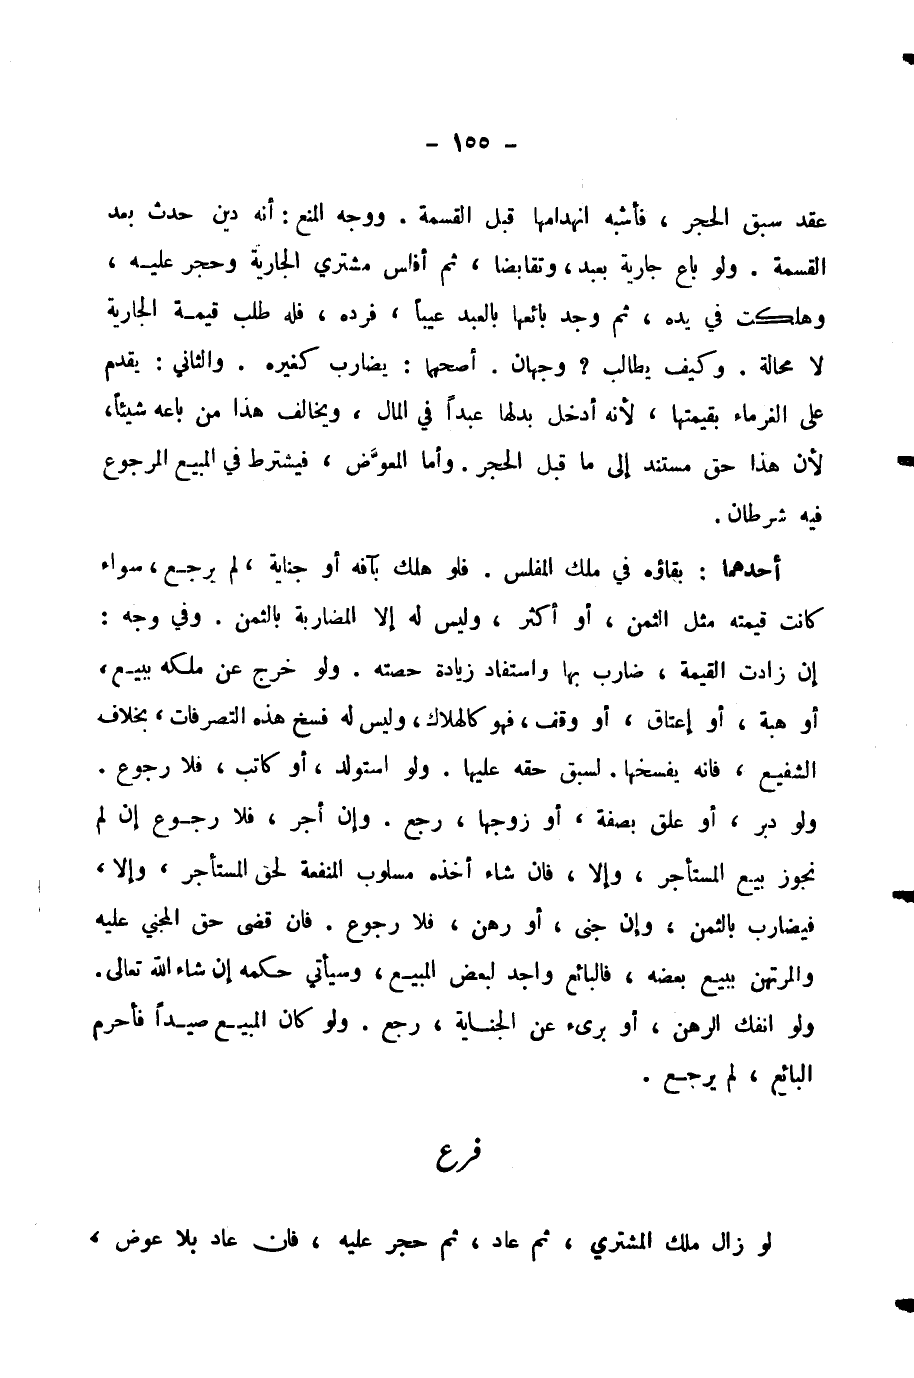 - ١٥٥ -
عقد سبق الحجر ، فأشبه انهدامها قبل القسمة . ووجه المنع : أنه دين حدث بعد
القسمة . ولو باع جارية بعبد ، وتقابضا ، ثم أفلس مشتري الجارية وحجر عليه ،
وهلكت في يده ، ثم وجد بائعها بالعبد عيباً ، فرده ، فله طلب قيمة الجارية
لا محالة . وكيف يطالب ؟ وجهان . أصحهما : يضارب كغيره . والثاني : يقدم
على الغرماء بقيمتها ، لأنه أدخل بدلها عبداً في المال ، ويخالف هذا من باعه شيئاً،
لأن هذا حق مستند إلى ما قبل الحجر . وأما المعوَّض ، فيشترط في المبيع المرجوع
فيه شرطان .
أحدهما : بقاؤه في ملك المفلس . فلو هلك بآفه أو جناية ، لم يرجع ، سواء
كانت قيمته مثل الثمن ، أو أكثر ، وليس له إلا المضاربة بالثمن . وفي وجه :
إن زادت القيمة ، ضارب بها واستفاد زيادة حصته . ولو خرج عن ملكه ببيع ،
أو هبة ، أو إعتاق ، أو وقف ، فهو كالهلاك ، وليس له فسخ هذه التصرفات ، بخلاف
الشفيع ، فانه يفسخها . لسبق حقه عليها . ولو استولد ، أو كاتب ، فلا رجوع .
ولو دبر ، أو علق بصفة ، أو زوجها ، رجع . وإن أجر ، فلا رجوع إن لم
نجوز بيع المستأجر ، وإلا ، فان شاء أخذه مسلوب المنفعة لحق المستأجر ، وإلا ،
فيضارب بالثمن ، وإن جنى ، أو رهن ، فلا رجوع . فان قضى حق المجني عليه
والمرتهن ببيع بعضه ، فالبائع واجد لبعض المبيع ، وسيأتي حكمه إن شاء الله تعالى .
ولو انفك الرهن ، أو برىء عن الجناية ، رجع . ولو كان المبيع صيداً فأحرم
البائع ، لم يرجع .
فرع
لو زال ملك المشتري ، ثم عاد ، ثم حجر عليه ، فان عاد بلا عوض ،